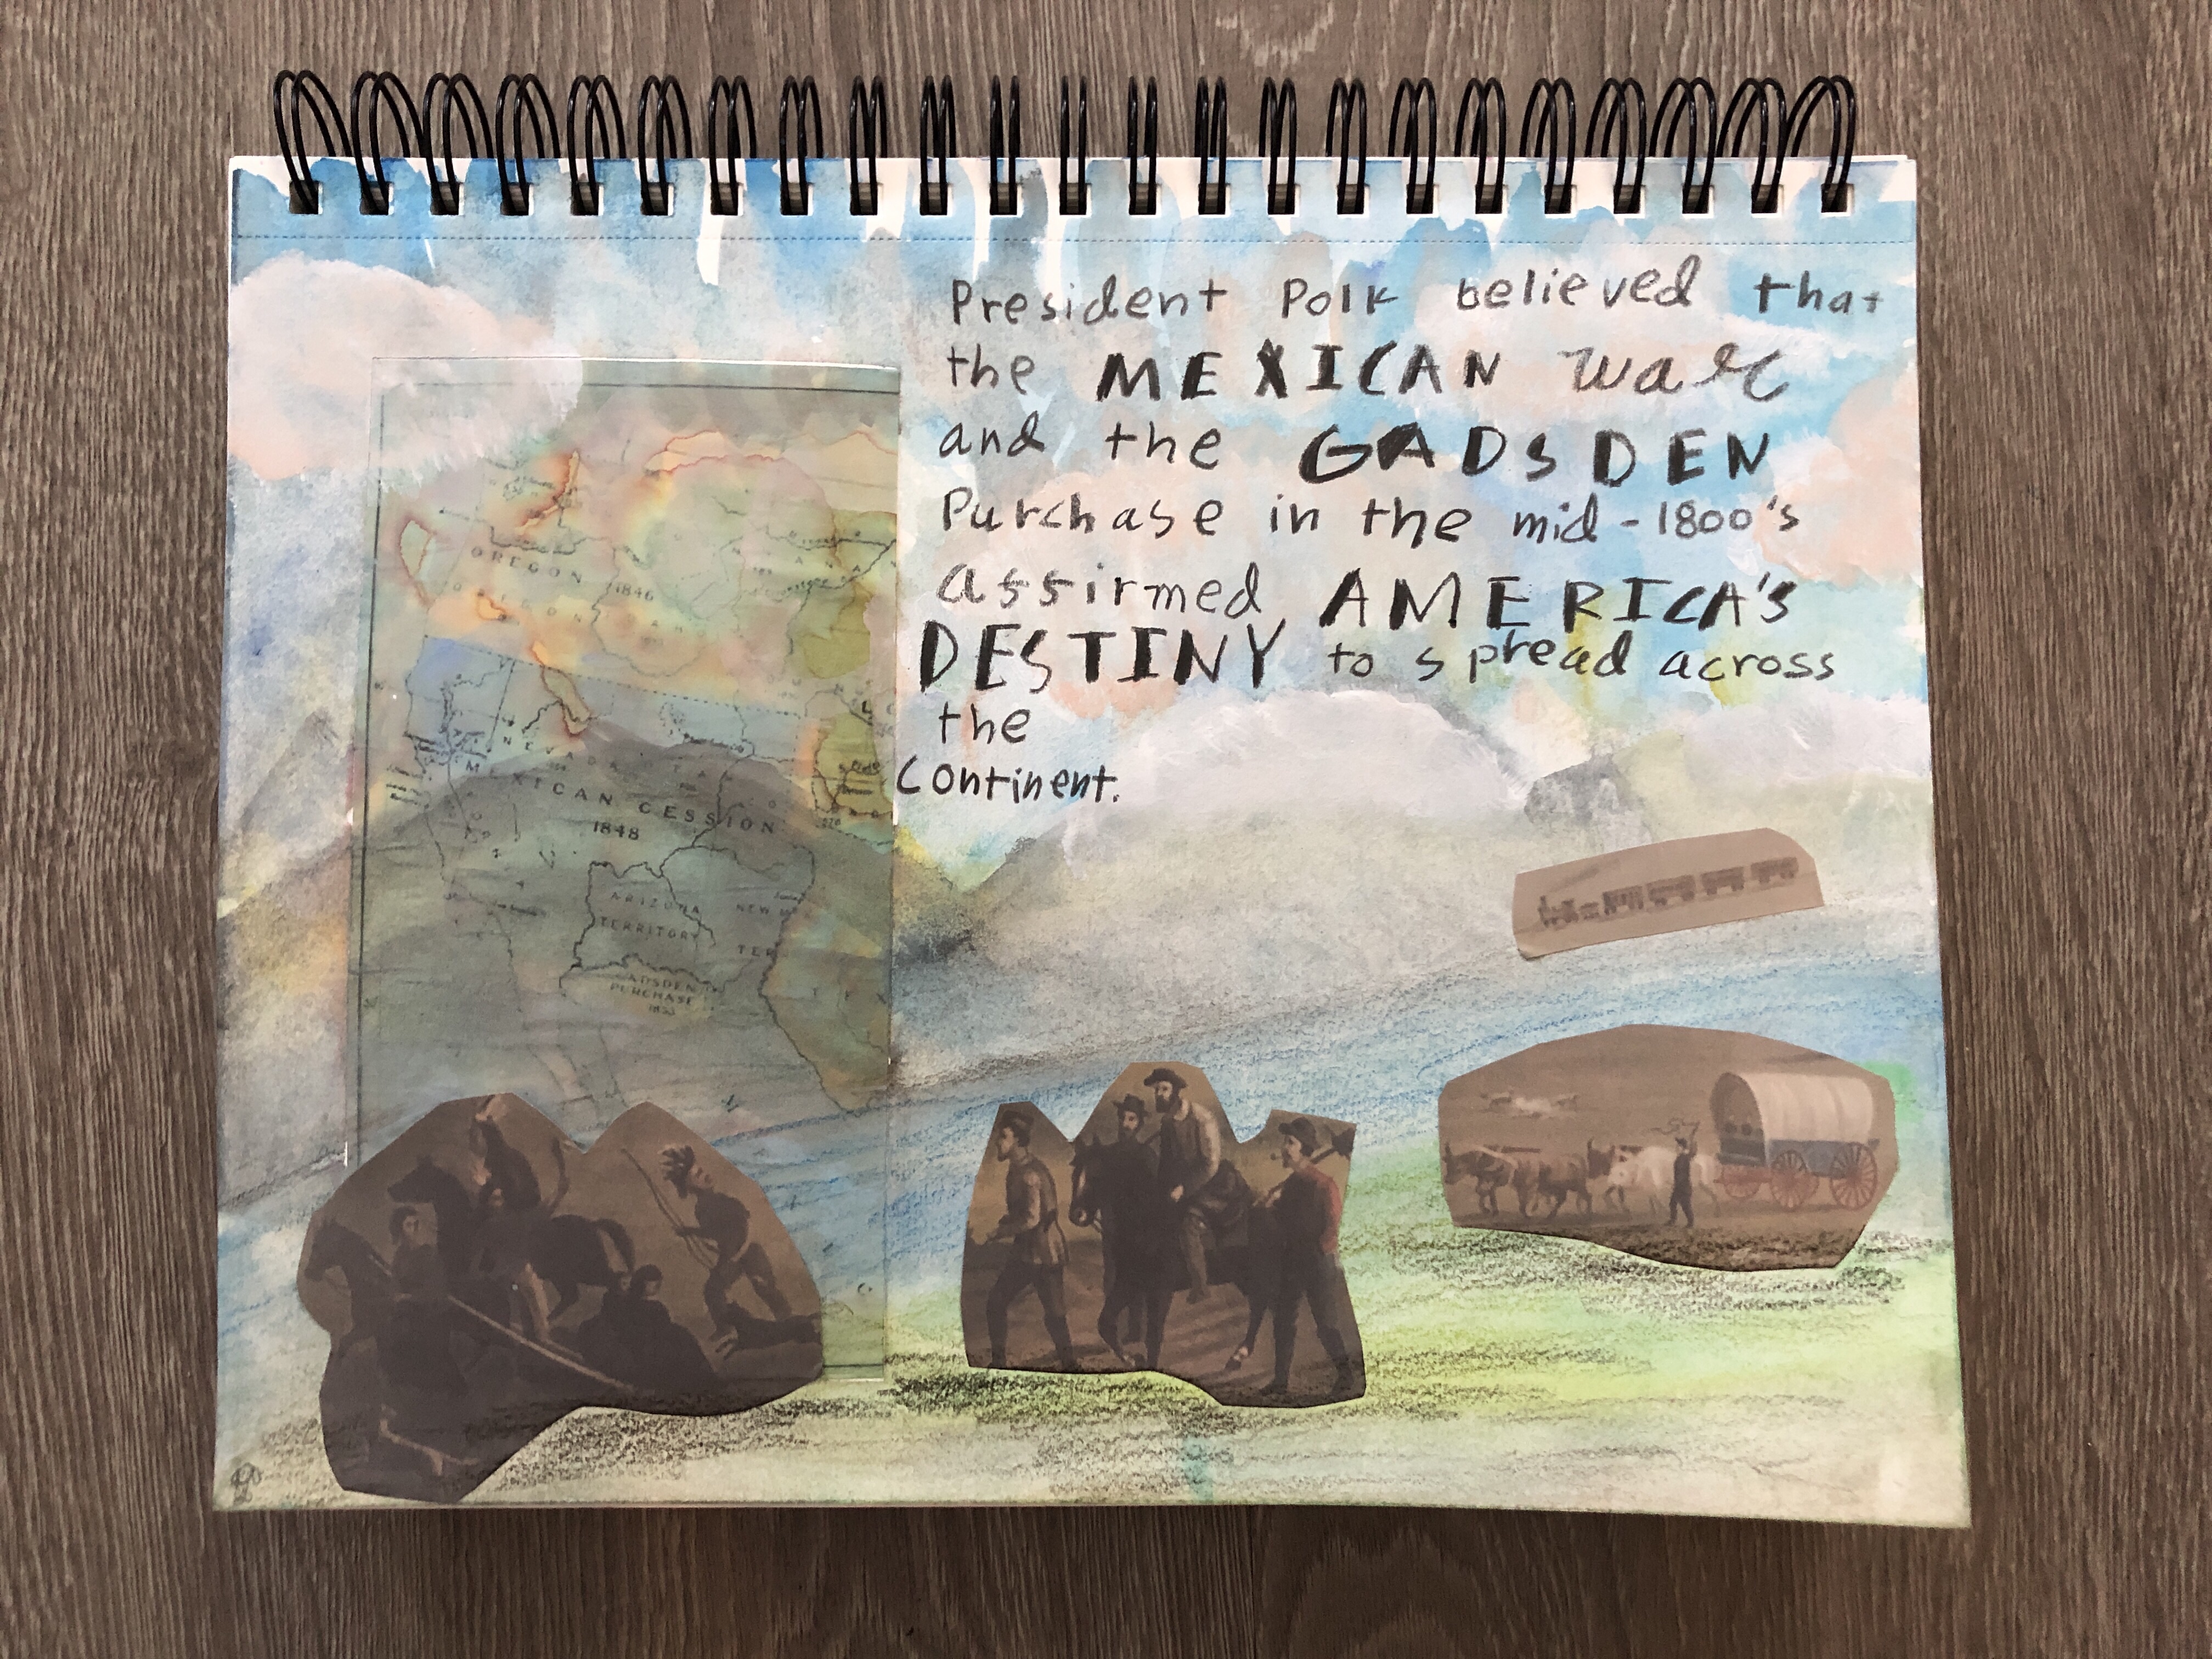 President Polk believed that
the MEXICAN war
and the GADSDEN
Purchase in the mid-1800's
affirmed AMERICA'S
DESTINY to spread across
the
Continent.
OREGON 1846
OREGON
NEVADA UTAH
MEXICAN CESSION
1848
ARIZONA
TERRITORY
NEW
TER
TEX
GADSDEN
PURCHASE
1853